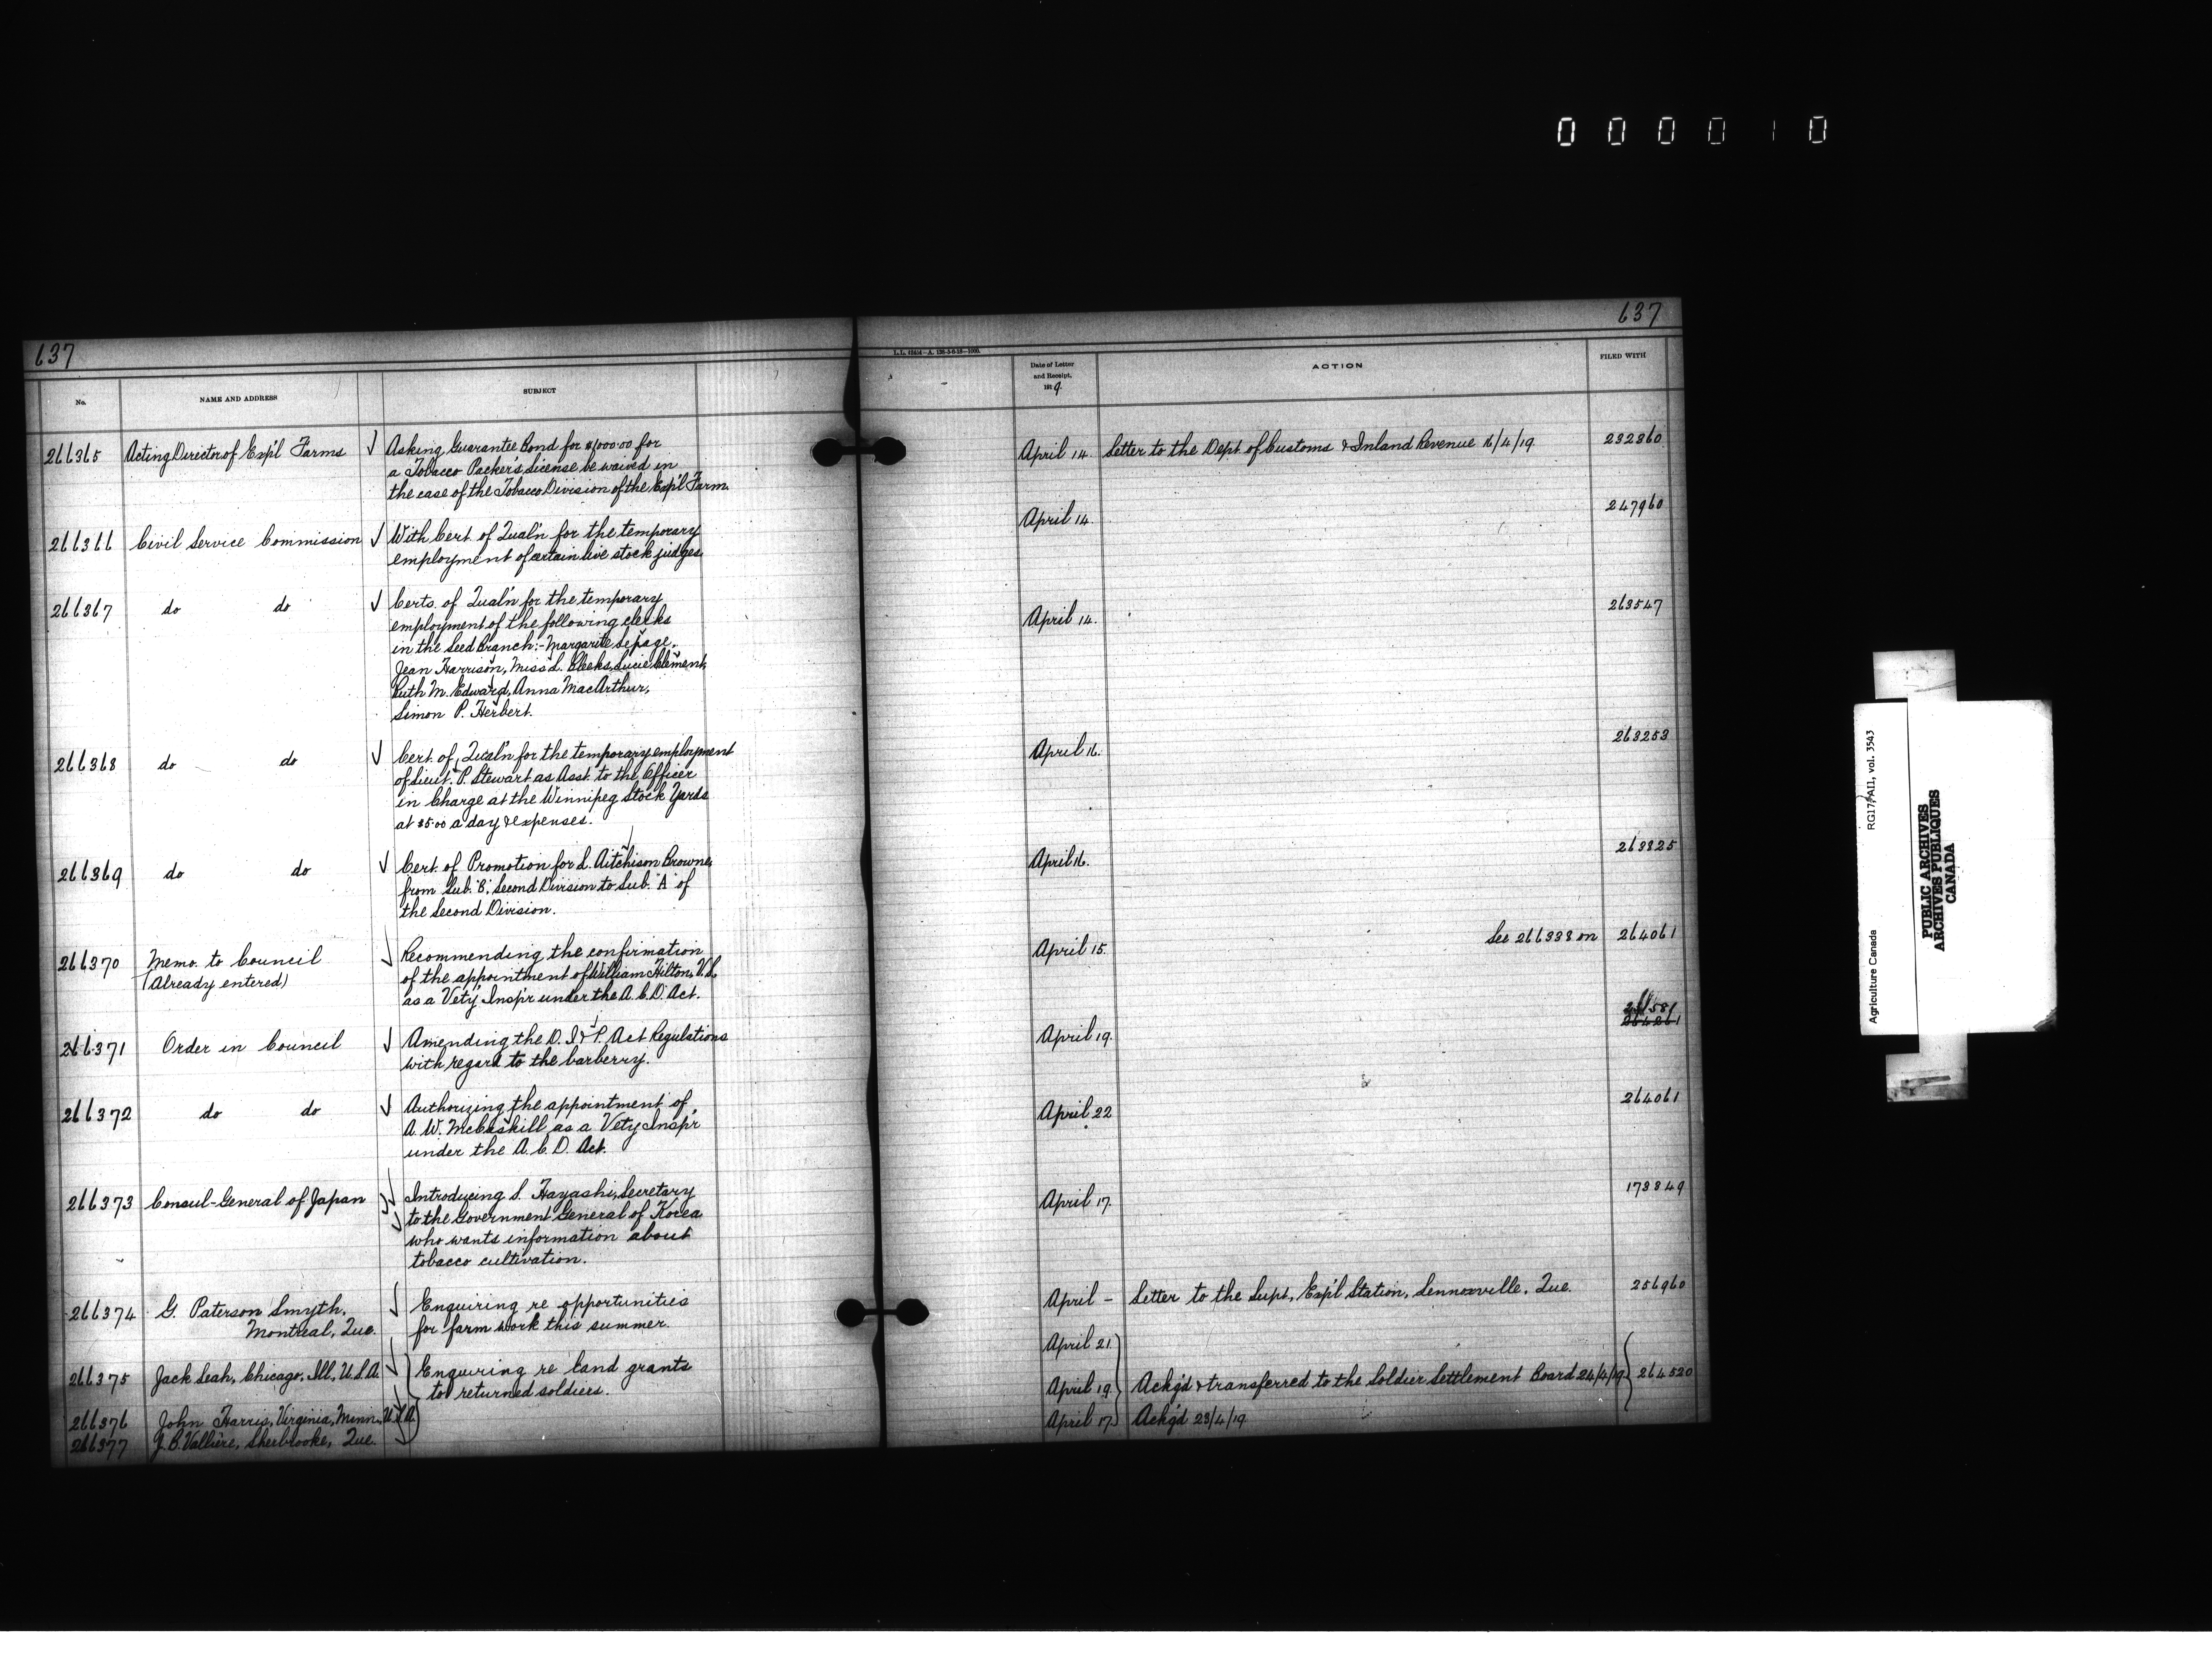 000010
637
637
L.L. 62414—A. 128-3-6-18—1000.
No.
NAME AND ADDRESS
SUBJECT
Date of Letter
and Receipt,
1919.
ACTION
FILED WITH
266365 Acting Director of Exp'l Farms √ Asking Guarantee Bond for $1000.00 for
a Tobacco Packer's License be waived in
the case of the Tobacco Division of the Exp'l Farm.
April 14. Letter to the Dept. of Customs & Inland Revenue 16/4/19. 232860
266366 Civil Service Commission √ With Cert. of Qual'n for the temporary
employment of certain live stock judges.
April 14. 247960
266367 do do √ Certs. of Qual'n for the temporary
employment of the following clerks
in the Seed Branch:- Margarite Lepage,
Jean Harrison, Miss L. Bleeks, Lucie Clement,
Ruth M. Edward, Anna MacArthur,
Simon P. Herbert.
April 14. 263547
266368 do do √ Cert. of Qual'n for the temporary employment
of Lieut. P. Stewart as Asst. to the Officer
in Charge at the Winnipeg Stock Yards
at $5.00 a day & expenses.
April 16. 263253
266369 do do √ Cert. of Promotion for L. Aitchison Browne,
from Sub. "B", Second Division to Sub. "A" of
the Second Division.
April 16. 263825
266370 Memo. to Council √ Recommending the confirmation
(Already entered) of the appointment of William Hilton, V.S.
as a Vety. Insp'r under the A.C.D. Act.
April 15. See 266338 on 264061
266371 Order in Council √ Amending the D. I & P. Act Regulations
with regard to the barberry.
April 19. 264261
266372 do do √ Authorizing the appointment of
A. W. McCaskill as a Vety Insp'r
under the A.C.D. Act.
April 22 264061
266373 Consul-General of Japan √ Introducing S. Hayashi, Secretary
to the Government General of Korea
who wants information about
tobacco cultivation.
April 17. 178849
266374 G. Paterson Smyth, √ Enquiring re opportunities
Montreal, Que. for farm work this summer.
April – Letter to the Supt., Exp'l Station, Lennoxville, Que. 256960
266375 Jack Leah, Chicago, Ill., U.S.A. √ Enquiring re land grants
to returned soldiers.
April 21
266376 John Harris, Virginia, Minn., U.S.A. √
April 19. Ackg'd & transferred to the Soldier Settlement Board 24/4/19. 264520
266377 J. B. Vallière, Sherbrooke, Que. √
April 17. Ackg'd 23/4/19
Agriculture Canada RG17, AII, vol. 3543
PUBLIC ARCHIVES
ARCHIVES PUBLIQUES
CANADA